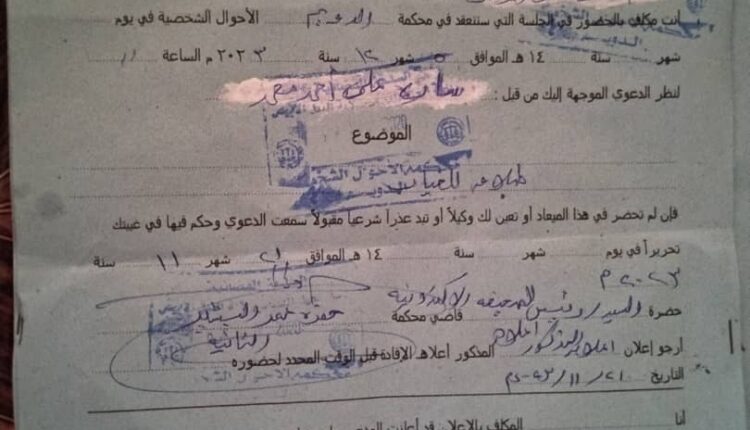 أنت مكلف بالحضور في الجلسة التي ستنعقد في محكمة الدويم الأحوال الشخصية في يوم
شهر سنة ١٤ هـ الموافق ٥ شهر ١٢ سنة ٢٠٢٣ م الساعة
لنظر الدعوي الموجهة إليك من قبل : سارة علي أحمد محمد
الموضوع
طلاق للغياب
فإن لم تحضر في هذا الميعاد أو تعين لك وكيلاً أو تبد عذراً شرعياً مقبولاً سمعت الدعوي وحكم فيها في غيبتك
تحريراً في يوم شهر سنة ١٤ هـ الموافق ٢١ شهر ١١ سنة
٢٠٢٣ م
حضرة والسيد/ رئيس الصحيفة الإلكترونية قاضي محكمة
أرجو إعلان المذكور أعلاه المذكور أعلاهـ الإفادة قبل الوقت المحدد لحضوره
التاريخ ٢١/١١/٢٠٢٣م
أنا المكلف بالإعلان قد أعلنت